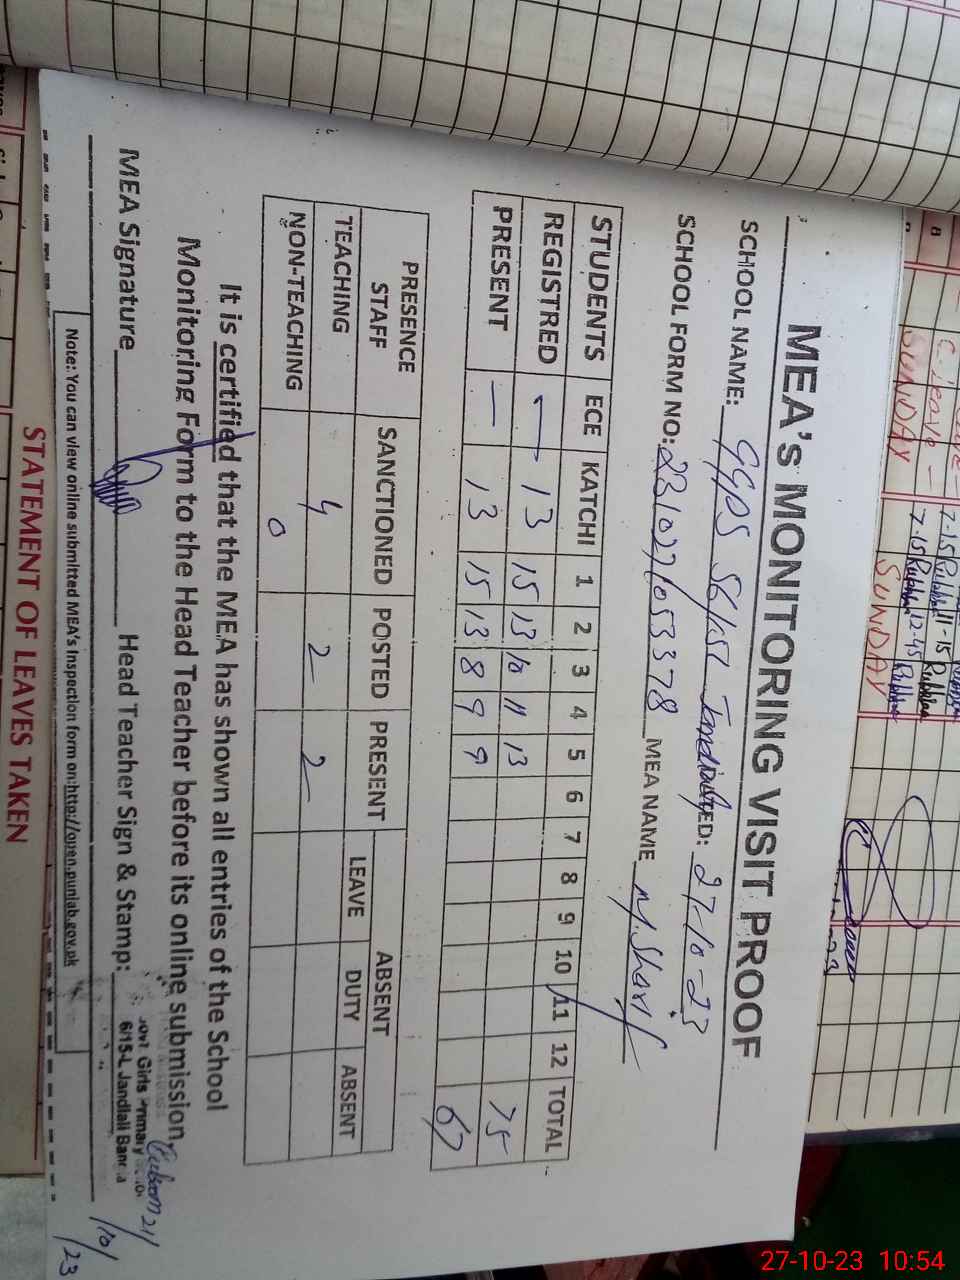 MEA's MONITORING VISIT PROOF
SCHOOL NAME: GGPS 56/15L DATED: 27-10-23
SCHOOL FORM NO: MEA NAME M. Sharif
STUDENTS ECE KATCHI 1 2 3 4 5 6 7 8 9 10 11 12 TOTAL
REGISTRED — 13 15 13 10 11 13 75
PRESENT — 13 15 13 8 9 9 67
PRESENCE STAFF SANCTIONED POSTED PRESENT ABSENT
LEAVE DUTY ABSENT
TEACHING 4 2 2
NON-TEACHING 0
It is certified that the MEA has shown all entries of the School
Monitoring Form to the Head Teacher before its online submission.
MEA Signature Head Teacher Sign & Stamp:
Govt Girls Primary
6/15-L Jandiali
21/10/23
Note: You can view online submitted MEA's Inspection form on:http://open.punjab.gov.pk
STATEMENT OF LEAVES TAKEN
C-leave
SUNDAY
7-15 11-15
7-15 12-45
SUNDAY
27-10-23 10:54